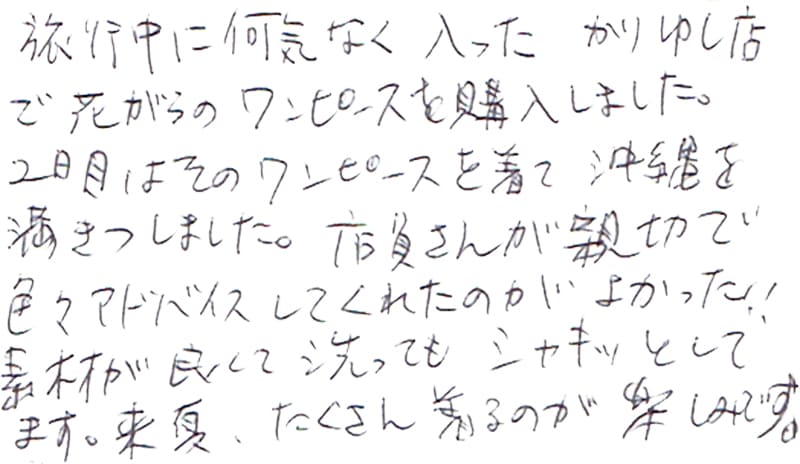 旅行中に何気なく入った かりゆし店
で花がらのワンピースを購入しました。
2日目はそのワンピースを着て沖縄を
満きつしました。店員さんが親切で
色々アドバイスしてくれたのがよかった!!
素材が良くて洗ってもシャキッとして
ます。来夏、たくさん着るのが楽しみです。